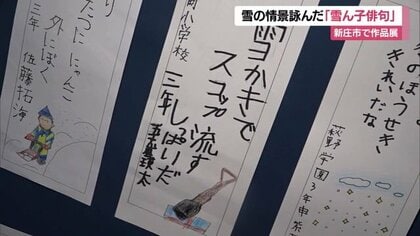 雪の情景詠んだ「雪ん子俳句」
新庄市で作品展
のぼうせき
きれいだな
萩野学園3年
雪かきで
スコップ流す
しっぱいだ
小学校
三年
たつにゃんこ
外にぼく
三年 佐藤拓海